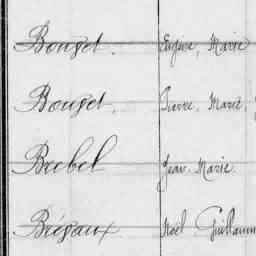 Bouget. Eugène, Marie
Bouget, Pierre, Marie,
Brebel Jean Marie
Brégaux Noël Guillaum